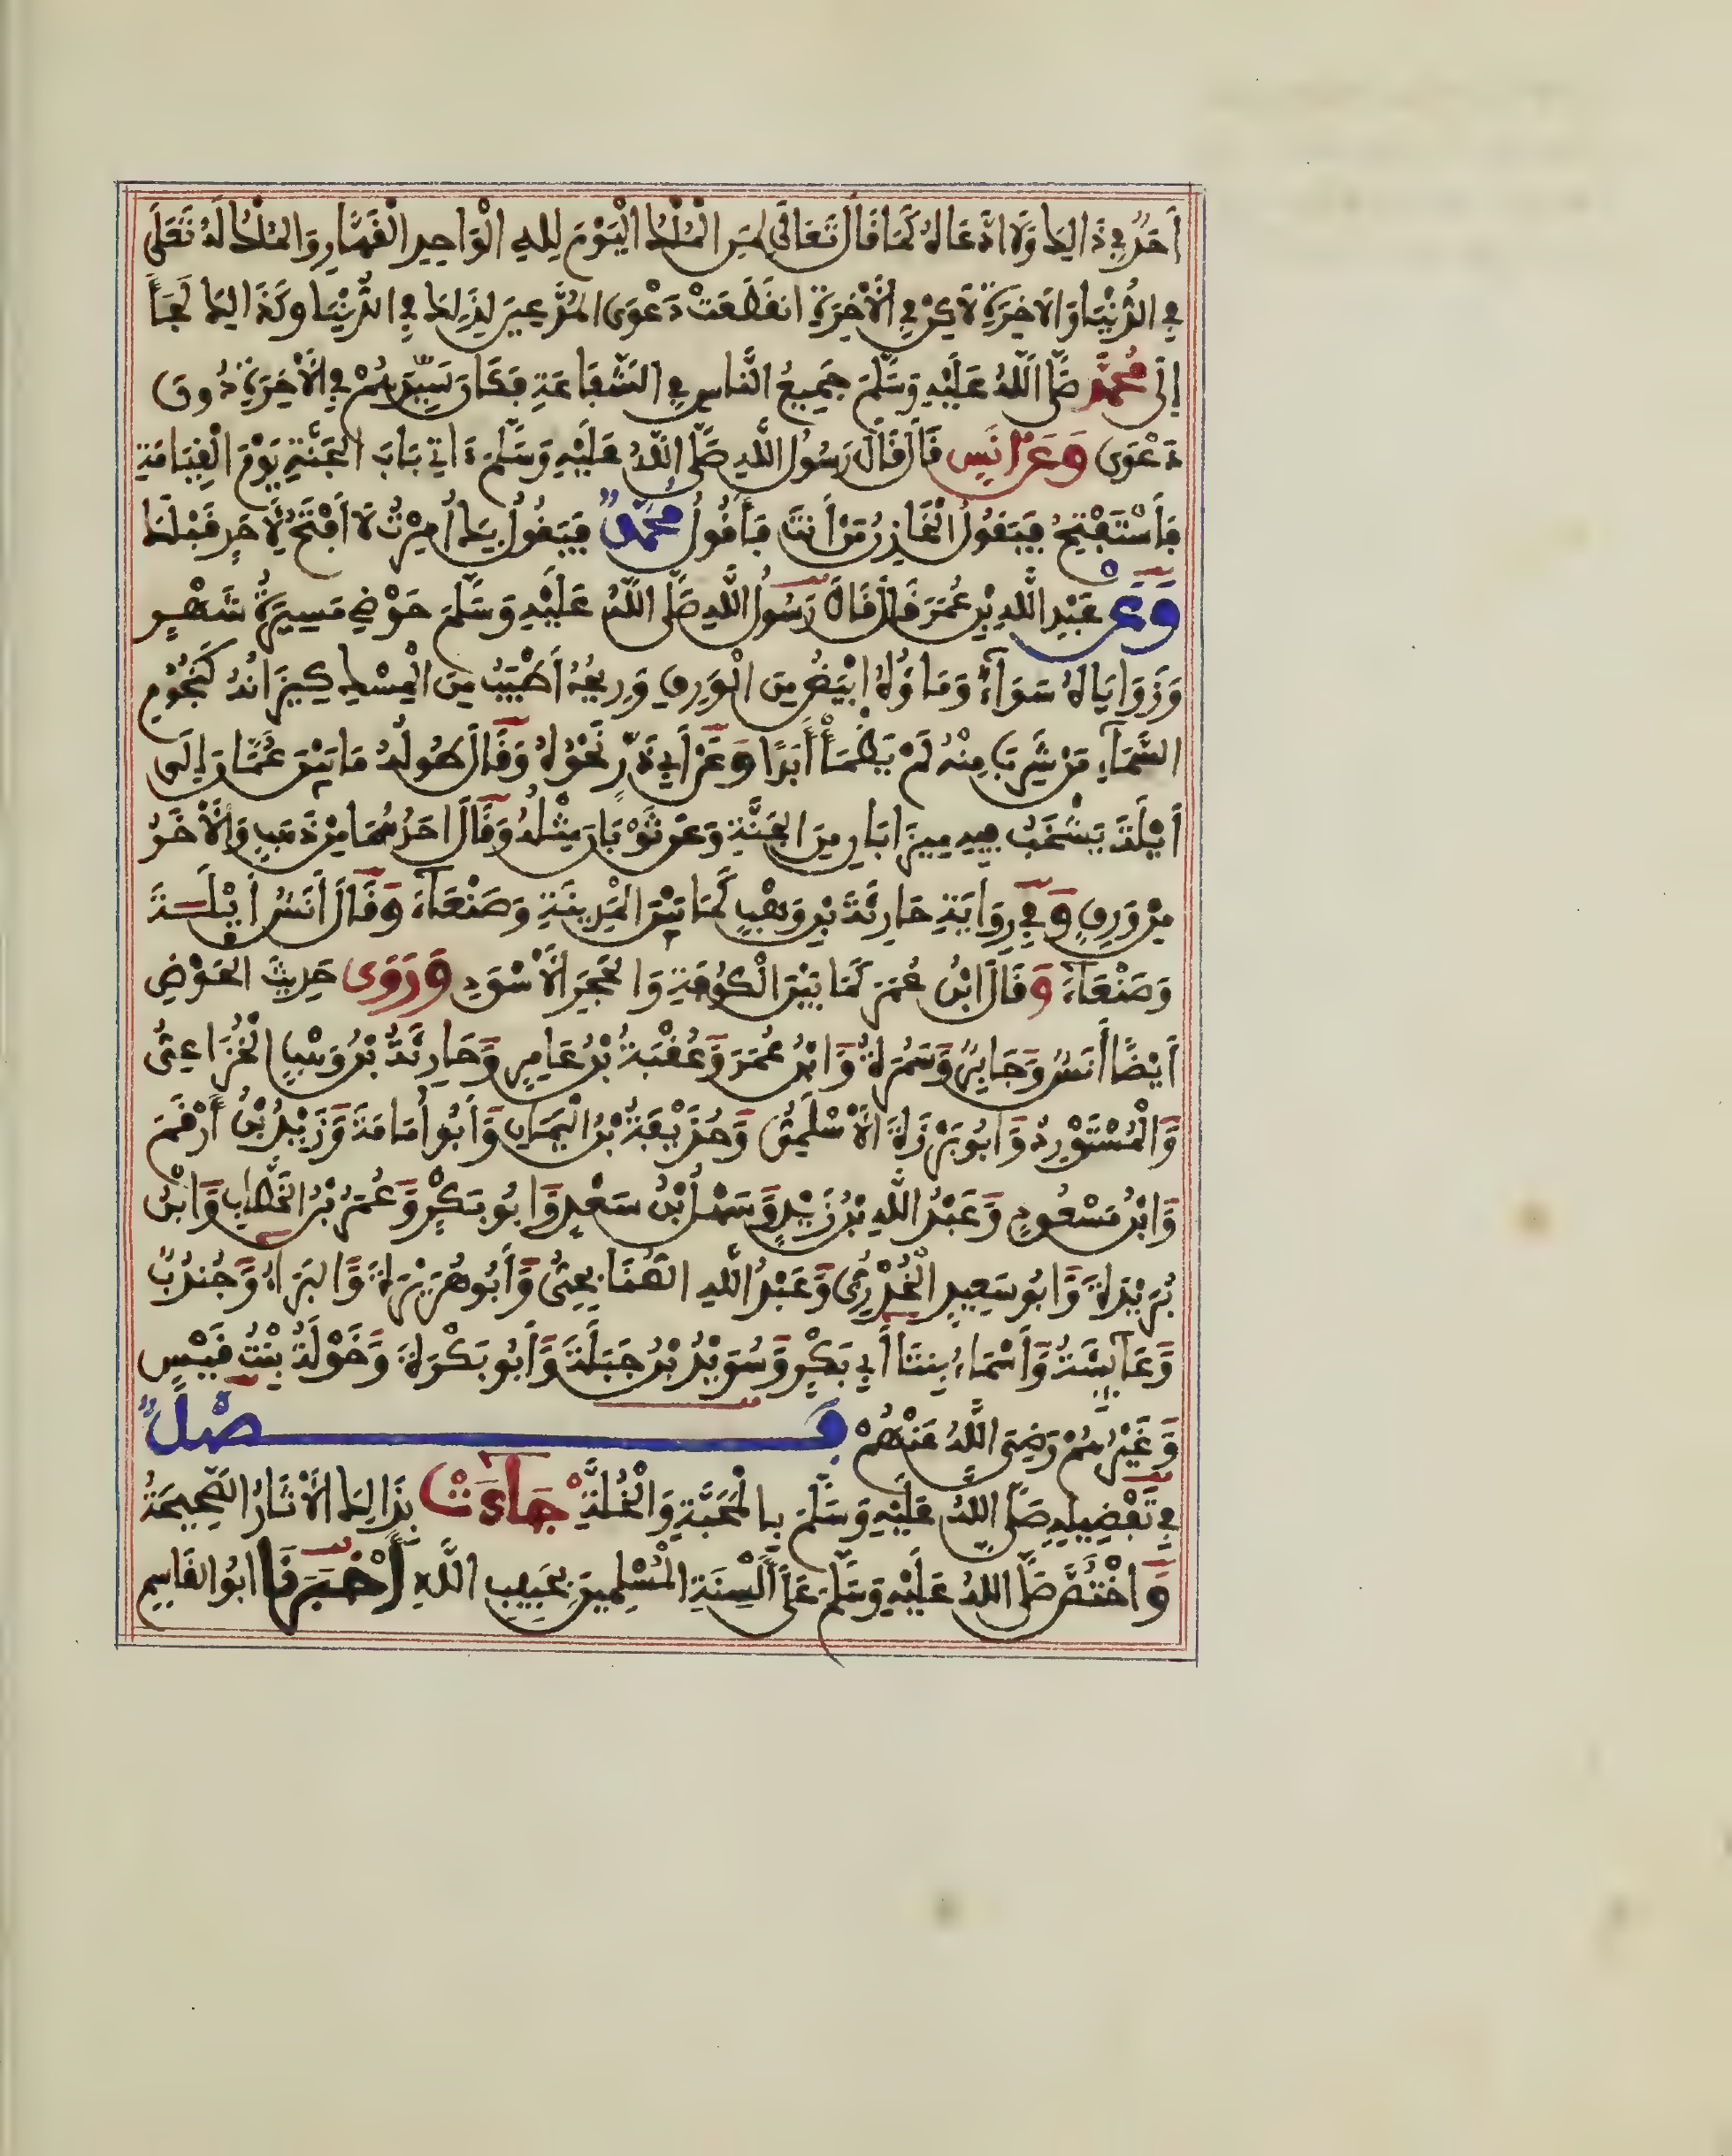 أَحَدٌ فِي ذَالِكَ وَلَا ادَّعَاهُ كَمَا قَالَ تَعَالَى لِمَنِ الْمُلْكُ الْيَوْمَ لِلهِ الْوَاحِدِ الْقَهَّارِ وَالْمُلْكُ لَهُ تَعَلَى
فِي الدُّنْيَا وَالَاخِرَةِ لَاكِنْ فِي الْأَخِرَةِ انقَطَعَتْ دَعْوَى الْمُدَّعِينَ لِذَلِكَ فِي الدُّنْيَا وَكَذَالِكَ لَجَأَ
إِلَى مُحَمَّدٍ صَلَّى اللَّهُ عَلَيْهِ وَسَلَّمَ جَمِيعُ النَّاسِ فِي الشَّفَاعَةِ فَكَانَ سَيِّدَهُمْ فِي الْأَخِرَةِ دُونَ
دَعْوَى وَعَنْ أَنَسٍ قَالَ قَالَ رَسُولُ اللَّهِ صَلَّى اللَّهُ عَلَيْهِ وَسَلَّمَ ءَاتِي بَابَ الْجَنَّةِ يَوْمَ الْقِيَامَةِ
فَأَسْتَفْتِحُ فَيَقُولُ الْخَازِنُ مَنْ أَنتَ فَأَقُولُ مُحَمَّدٌ فَيَقُولُ بِكَ أُمِرْتُ لَا أَفْتَحُ لِأَحَدٍ قَبْلَكَ
وَعَنْ عَبْدِ اللَّهِ بْنِ عُمَرَ قَالَ قَالَ رَسُولُ اللَّهِ صَلَّى اللَّهُ عَلَيْهِ وَسَلَّمَ حَوْضِي مَسِيرَةُ شَهْرٍ
وَزَوَايَاهُ سَوَآءٌ وَمَاؤُهُ ابْيَضُ مِنَ الْوَرِقِ وَرِيحُهُ أَطْيَبُ مِنَ الْمِسْكِ كِيزَانُهُ كَنُجُومِ
السَّمَآءِ مَنْ شَرِبَ مِنْهُ لَمْ يَظْمَأْ أَبَدًا وَعَنْ أَبِي ذَرٍّ نَحْوُهُ وَقَالَ طُولُهُ مَا بَيْنَ عُمَانَ إِلَى
أَيْلَةَ يَشْخَبُ فِيهِ مِيزَابَانِ مِنَ الْجَنَّةِ وَعَنْ ثَوْبَانَ مِثْلُهُ وَقَالَ احَدُهُمَا مِنْ ذَهَبٍ وَالْأَخَرُ
مِنْ وَرِقٍ وَفِي رِوَايَةِ حَارِثَةَ بْنِ وَهْبٍ كَمَا بَيْنَ الْمَدِينَةِ وَصَنْعَآءَ وَقَالَ أَنَسٌ أَيْلَةَ
وَصَنْعَآءَ وَقَالَ ابْنُ عُمَرَ كَمَا بَيْنَ الْكُوفَةِ وَالْحَجَرِ الْأَسْوَدِ وَرَوَى حَدِيثَ الْحَوْضِ
أَيْضًا أَنَسٌ وَجَابِرٌ وَسَمُرَةُ وَابْنُ عُمَرَ وَعُقْبَةُ بْنُ عَامِرٍ وَحَارِثَةُ بْنُ وَهْبٍ الْخُزَاعِيُّ
وَالْمُسْتَوْرِدُ وَابُو بَرْزَةَ الْأَسْلَمِيُّ وَحُذَيْفَةُ بْنُ الْيَمَانِ وَأَبُو أُمَامَةَ وَزَيْدُ بْنُ أَرْقَمَ
وَابْنُ مَسْعُودٍ وَعَبْدُ اللَّهِ بْنُ زَيْدٍ وَسَهْلُ بْنُ سَعْدٍ وَابُو بَكْرٍ وَعُمَرُ بْنُ الْخَطَّابِ وَابْنُ
بُرَيْدَةَ وَابُو سَعِيدٍ الْخُدْرِيُّ وَعَبْدُ اللَّهِ الصُّنَابِحِيُّ وَأَبُو هُرَيْرَةَ وَالْبَرَاءُ وَجُندُبٌ
وَعَآئِشَةُ وَأَسْمَاءُ بِنتَا أَبِي بَكْرٍ وَسُوَيْدُ بْنُ جَبَلَةَ وَأَبُو بَكْرَةَ وَخَوْلَةُ بِنْتُ قَيْسٍ
وَغَيْرُهُمْ رَضِيَ اللَّهُ عَنْهُمْ فَصْلٌ
فِي تَفْضِيلِهِ صَلَّى اللَّهُ عَلَيْهِ وَسَلَّمَ بِالْمَحَبَّةِ وَالْخُلَّةِ جَآءَتْ بِذَالِكَ الْأَثَارُ الصَّحِيحَةُ
وَاخْتُصَّ صَلَّى اللهُ عَلَيْهِ وَسَلَّمَ عَلَى أَلْسِنَةِ الْمُسْلِمِينَ بِحَبِيبِ اللَّهِ أَخْبَرَنَا ابُو الْقَاسِمِ